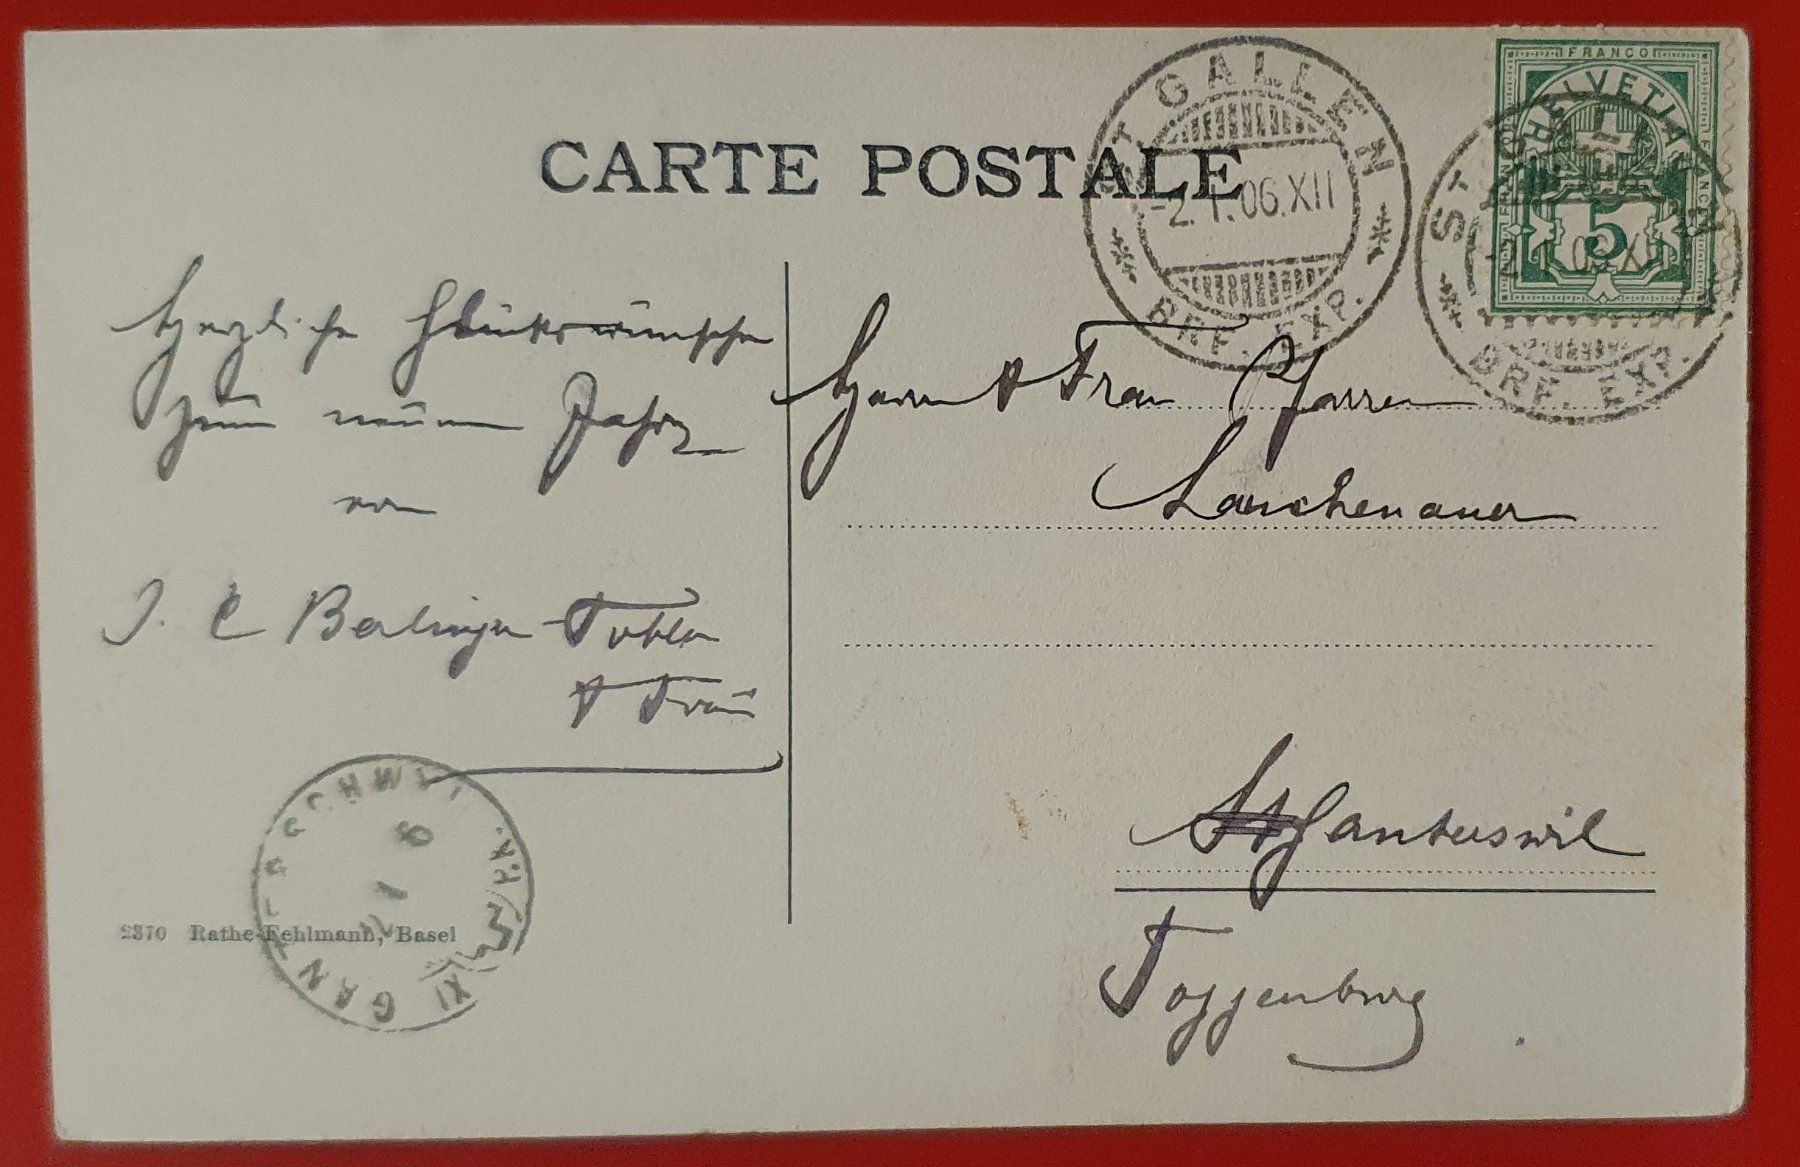 CARTE POSTALE
ST. GALLEN
-2.1.06.XII
BRF. EXP.
FRANCO
HELVETIA
5
ST. GALLEN
BRF. EXP.
Herzliche Glückwünsche
zum neuen Jahre
von
J. C Berlinger-Tobler
& Frau
Herrn & Frau Pfarrer
Lauchenauer
Ganterswil
Toggenburg
2370 Rathe-Fehlmann, Basel